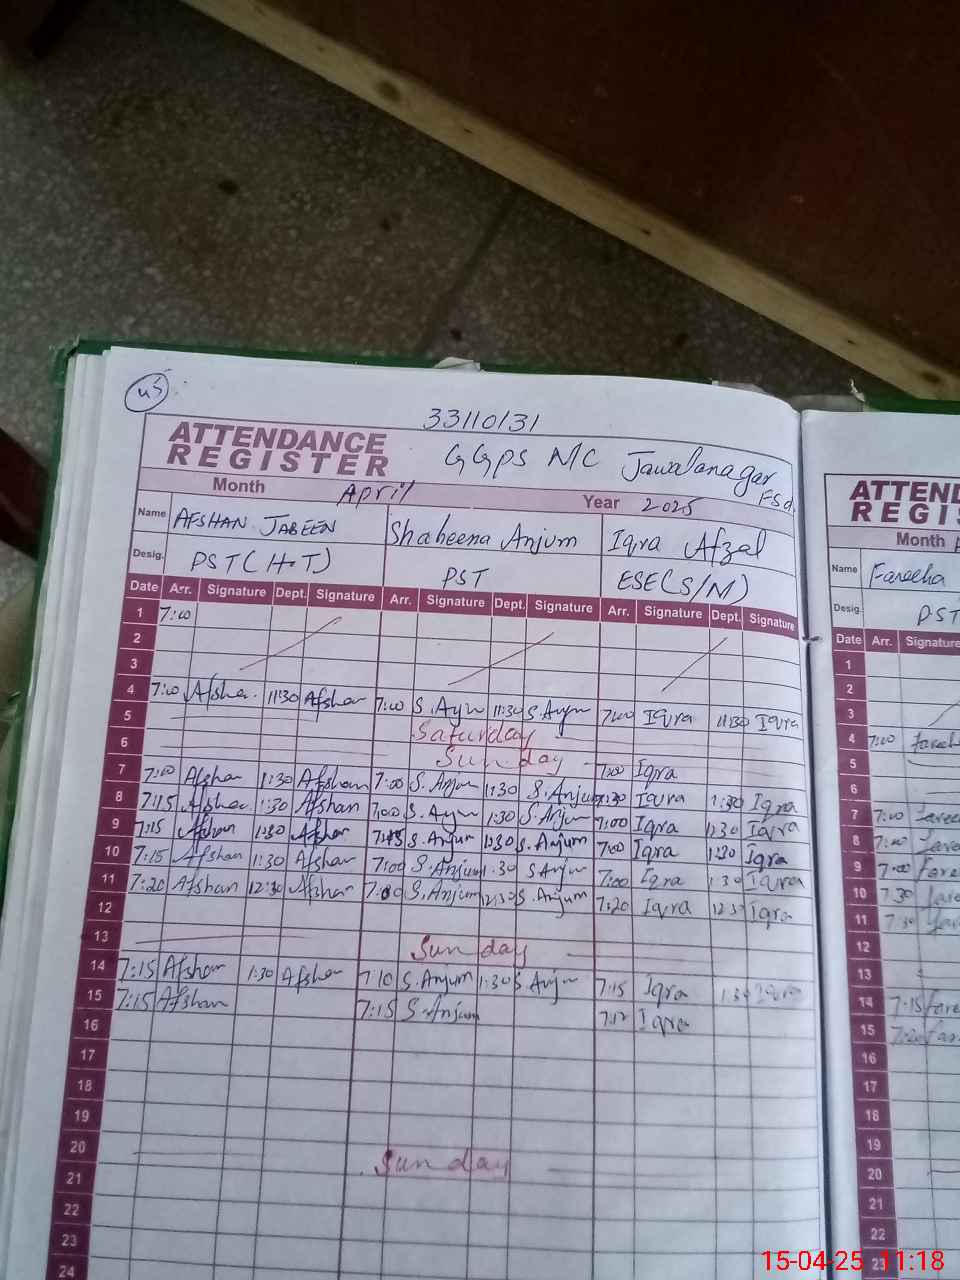 45
33110131
ATTENDANCE REGISTER
GGPS M/C Jawalanagar Fsd.
Month April Year 2025
Name AFSHAN JABEEN Shabeena Anjum Iqra Afzal
Desig. PST (H.T) PST ESE (S/M)
Date Arr. Signature Dept. Signature Arr. Signature Dept. Signature Arr. Signature Dept. Signature
1 7:00
2
3
4 7:00 Afshan 11:30 Afshan 7:00 S. Anjum 11:30 S. Anjum 7:00 Iqra 11:30 Iqra
5 Saturday
6 Sunday
7 7:00 Afshan 1:30 Afshan 7:00 S. Anjum 1:30 S. Anjum 7:00 Iqra 1:30 Iqra
8 7:15 Afshan 1:30 Afshan 7:00 S. Anjum 1:30 S. Anjum Iqra 1:30 Iqra
9 7:15 Afshan 1:30 Afshan 7:15 S. Anjum 1:30 S. Anjum 7:00 Iqra 1:30 Iqra
10 7:15 Afshan 1:30 Afshan 7:00 S. Anjum 1:30 S Anjum 7:00 Iqra 1:30 Iqra
11 7:20 Afshan 12:30 Afshan 7:00 S. Anjum 12:30 S. Anjum 7:20 Iqra 12:30 Iqra
12
13 Sunday
14 7:15 Afshan 1:30 Afshan 7:10 S. Anjum 1:30 S. Anjum 7:15 Iqra 1:30 Iqra
15 7:15 Afshan 7:15 S. Anjum 7:12 Iqra
16
17
18
19
20 Sunday
21
22
23
24
ATTEND
REGIS
Month
Name Fareeha
Desig. PST
Date Arr. Signature
1
2
3
4 7:00 Fareeh
5
6
7 7:00 Faree
8 7:00 Fare
9 7:00 Fare
10 7:30 Fare
11 7:30 Fare
12
13
14 7:15 Fare
15 7:20 Far
16
17
18
19
20
21
22
23
15-04-25 11:18